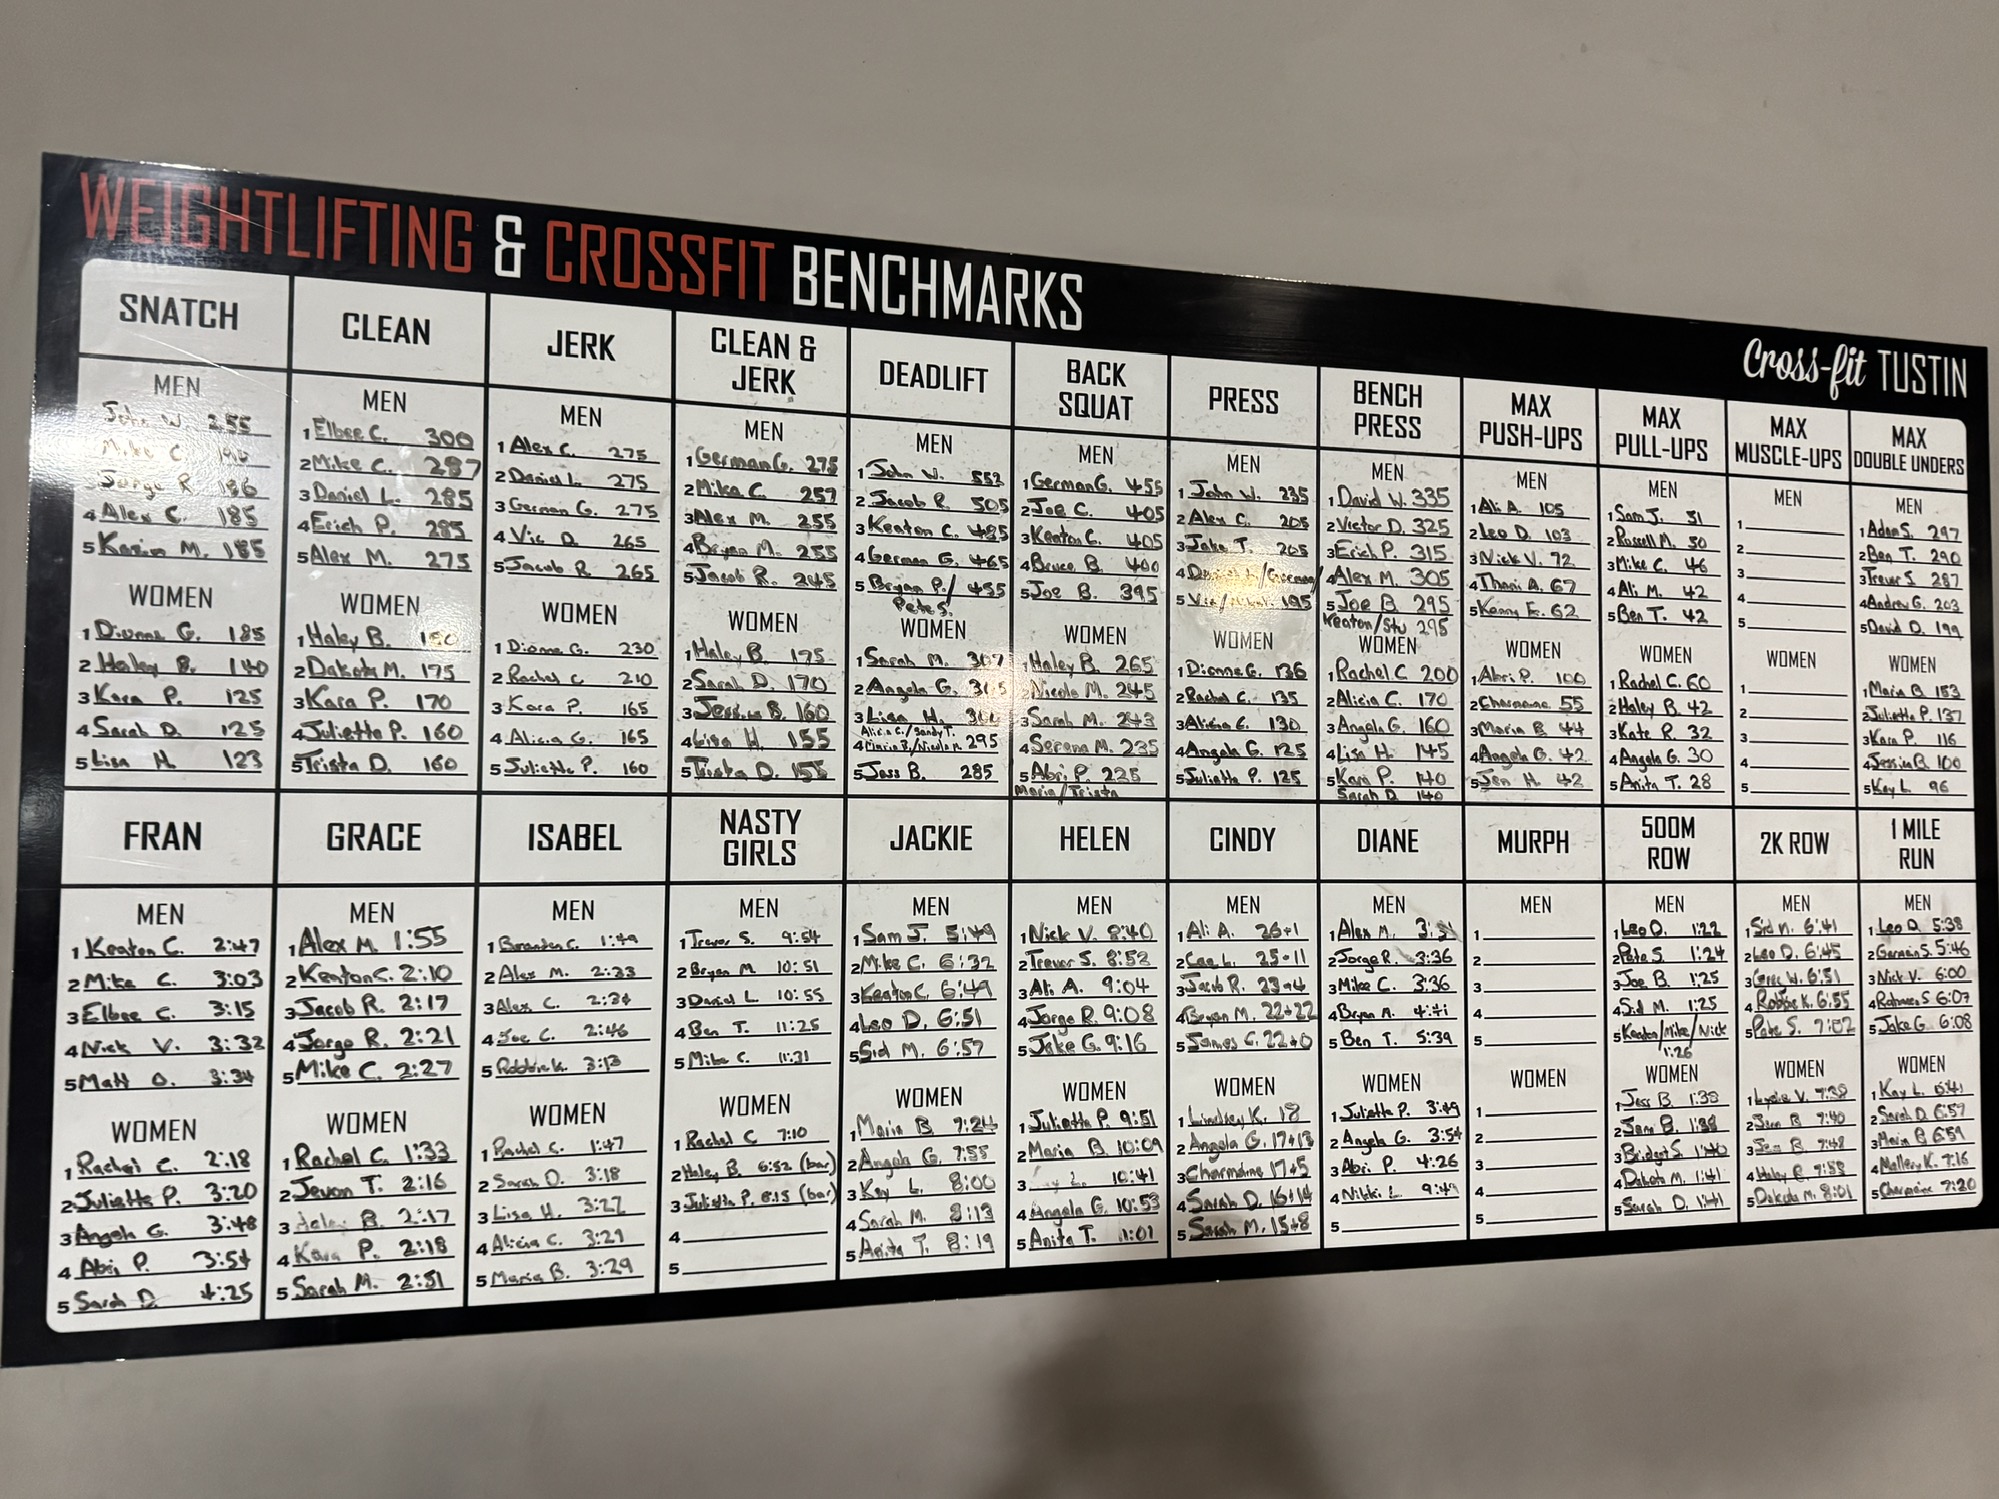 WEIGHTLIFTING & CROSSFIT BENCHMARKS
Cross-fit TUSTIN
SNATCH
MEN
John W. 255
Mike C. 190
Jorge R. 186
4 Alex C. 185
5 M. 185
WOMEN
1 Dionne G. 185
2 Haley B. 140
3 Kara P. 125
4 Sarah D. 125
5 Lisa H. 123
CLEAN
MEN
1 Elbee C. 300
2 Mike C. 287
3 Daniel L. 285
4 Erich P. 285
5 Alex M. 275
WOMEN
1 Haley B.
2 Dakota M. 175
3 Kara P. 170
4 Juliette P. 160
5 Trista D. 160
JERK
MEN
1 Alex C. 275
2 Daniel L. 275
3 German G. 275
4 Vic D. 265
5 Jacob R. 265
WOMEN
1 Dionne G. 230
2 Rachel C 210
3 Kara P. 165
4 Alicia G. 165
5 Juliette P. 160
CLEAN &
JERK
MEN
1 German G. 275
2 Mike C. 257
3 Alex M. 255
4 Bryan M. 255
5 Jacob R. 245
WOMEN
1 Haley B. 175
2 Sarah D. 170
3 Jessica B. 160
4 Lisa H. 155
5 Trista D. 155
DEADLIFT
MEN
1 John W. 552
2 Jacob R. 505
3 Keaton C. 485
4 German G. 465
5 Bryan P./ 455
Pete S.
WOMEN
1 Sarah M. 307
2 Angela G. 305
3 Lisa H. 300
Alicia C./Sandy T.
4 Maria B./Nicole M. 295
5 Jess B. 285
BACK
SQUAT
MEN
1 German G. 455
2 Joe C. 405
3 Keaton C. 405
4 Bruce B. 400
5 Joe B. 395
WOMEN
1 Haley B. 265
2 Nicole M. 245
3 Sarah M. 243
4 Serena M. 235
5 Abri P. 225
Maria/Trista
PRESS
MEN
1 John W. 235
2 Alex C. 205
3 Jake T. 205
4
5 195
WOMEN
1 Dionne G. 136
2 Rachel C. 135
3 Alicia C. 130
4 Angela G. 125
5 Juliette P. 125
BENCH
PRESS
MEN
1 David W. 335
2 Victor D. 325
3 Erich P. 315
4 Alex M. 305
5 Joe B 295
Keaton/Stu 295
WOMEN
1 Rachel C 200
2 Alicia C. 170
3 Angela G. 160
4 Lisa H. 145
5 Kara P. 140
Sarah D 140
MAX
PUSH-UPS
MEN
1 Ali A. 105
2 Leo D. 103
3 Nick V. 72
4 Thani A. 67
5 Kenny E. 62
WOMEN
1 Abri P. 100
2 Charmaine 55
3 Maria B 44
4 Angela G. 42
5 Jen H. 42
MAX
PULL-UPS
MEN
1 Sam J. 51
2 Russell M. 50
3 Mike C. 46
4 Ali M. 42
5 Ben T. 42
WOMEN
1 Rachel C. 60
2 Haley B. 42
3 Kate R. 32
4 Angela G. 30
5 Anita T. 28
MAX
MUSCLE-UPS
MEN
1
2
3
4
5
WOMEN
1
2
3
4
5
MAX
DOUBLE UNDERS
MEN
1 Adam S. 297
2 Ben T. 290
3 Trevor S. 287
4 Andrew G. 203
5 David D. 199
WOMEN
1 Maria B 153
2 Juliette P. 137
3 Kara P. 116
4 Jessica B. 100
5 Kay L. 96
FRAN
MEN
1 Keaton C. 2:47
2 Mike C. 3:03
3 Elbee C. 3:15
4 Nick V. 3:32
5 Matt O. 3:34
WOMEN
1 Rachel C. 2:18
2 Juliette P. 3:20
3 Angela G. 3:48
4 Abri P. 3:54
5 Sarah D. 4:25
GRACE
MEN
1 Alex M. 1:55
2 Keaton C. 2:10
3 Jacob R. 2:17
4 Jorge R. 2:21
5 Mike C. 2:27
WOMEN
1 Rachel C. 1:33
2 Jevon T. 2:16
3 Haley B. 2:17
4 Kara P. 2:18
5 Sarah M. 2:51
ISABEL
MEN
1 Brandon C. 1:49
2 Alex M. 2:33
3 Alex C. 2:34
4 Joe C. 2:46
5 Robbie K. 3:13
WOMEN
1 Rachel C. 1:47
2 Sarah D. 3:18
3 Lisa H. 3:27
4 Alicia C. 3:29
5 Maria B. 3:29
NASTY
GIRLS
MEN
1 Trevor S. 9:54
2 Bryan M 10:51
3 Daniel L 10:55
4 Ben T. 11:25
5 Mike C. 11:31
WOMEN
1 Rachel C 7:10
2 Haley B 6:52 (bar)
3 Juliette P. 8:15 (bar)
4
5
JACKIE
MEN
1 Sam J. 5:49
2 Mike C. 6:32
3 Keaton C. 6:49
4 Leo D. 6:51
5 Sid M. 6:57
WOMEN
1 Maria B 7:24
2 Angela G. 7:55
3 Kay L. 8:00
4 Sarah M. 8:13
5 Anita T. 8:19
HELEN
MEN
1 Nick V. 8:40
2 Trevor S. 8:52
3 Ali A. 9:04
4 Jorge R. 9:08
5 Jake G. 9:16
WOMEN
1 Juliette P. 9:51
2 Maria B. 10:09
3 L. 10:41
4 Angela G. 10:53
5 Anita T. 11:01
CINDY
MEN
1 Ali A. 26+1
2 Lee L. 25+11
3 Jacob R. 23+4
4 Bryan M. 22+22
5 James C. 22+0
WOMEN
1 Lindsey K. 18
2 Angela G. 17+13
3 Charmaine 17+5
4 Sarah D. 16+14
5 Sarah M. 15+8
DIANE
MEN
1 Alex M.
2 Jorge R. 3:36
3 Mike C. 3:36
4 Bryan A. 4:41
5 Ben T. 5:39
WOMEN
1 Juliette P. 3:49
2 Angela G. 3:54
3 Abri P. 4:26
4 Nikki L 9:49
5
MURPH
MEN
1
2
3
4
5
WOMEN
1
2
3
4
5
500M
ROW
MEN
1 Leo D. 1:22
2 Pete S. 1:24
3 Joe B. 1:25
4 Sid M. 1:25
5 Keaton/Mike/Nick
1:26
WOMEN
1 Jess B 1:38
2 Sam B. 1:38
3 Bridget S. 1:40
4 Dakota M. 1:41
5 Sarah D. 1:41
2K ROW
MEN
1 Sid M. 6:41
2 Leo D. 6:45
3 Greg W. 6:51
4 Robbie K. 6:55
5 Pete S. 7:02
WOMEN
1 Lydia V. 7:38
2 Sam B 7:40
3 Jess B 7:48
4 Haley B 7:58
5 Dakota M. 8:01
1 MILE
RUN
MEN
1 Leo D. 5:38
2 German S. 5:46
3 Nick V. 6:00
4 S 6:07
5 Jake G. 6:08
WOMEN
1 Kay L. 6:41
2 Sarah D 6:57
3 Maria B 6:59
4 Mallery K. 7:16
5 Charmaine 7:20